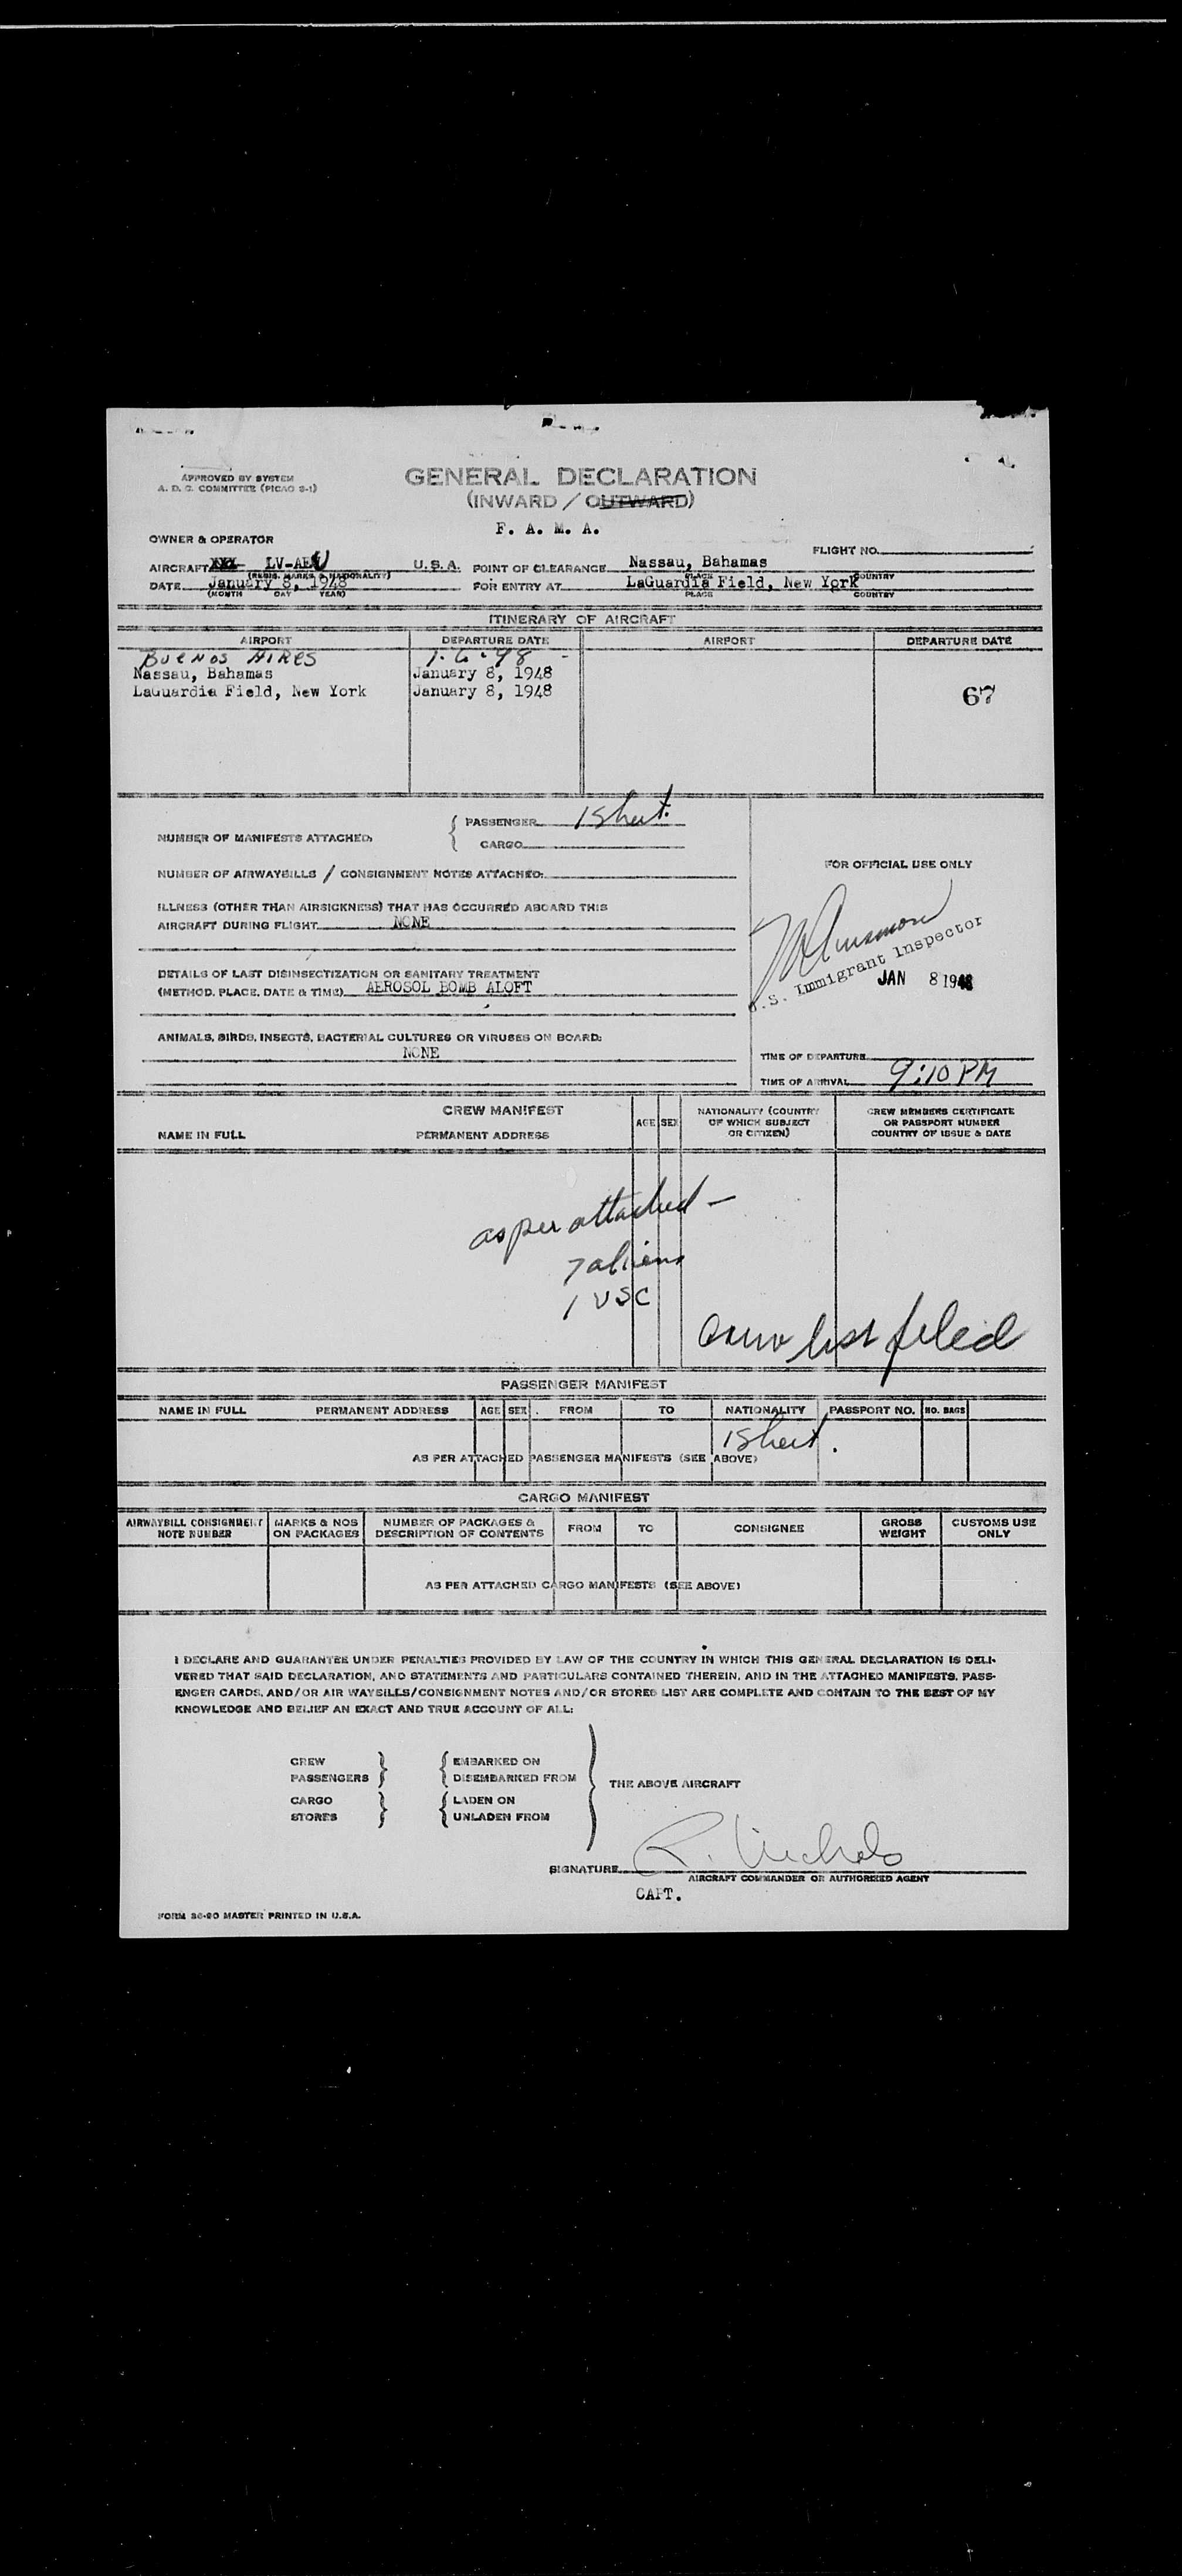 APPROVED BY SYSTEM
A. D. C. COMMITTEE (PICAO S-1)
GENERAL DECLARATION
(INWARD / OUTWARD)
F. A. M. A.
OWNER & OPERATOR
FLIGHT NO.
AIRCRAFT XXX LV-AEU U.S.A. POINT OF CLEARANCE Nassau, Bahamas
(REGIS. MARKS & NATIONALITY) PLACE COUNTRY
DATE January 8, 1948 FOR ENTRY AT LaGuardia Field, New York
(MONTH DAY YEAR) PLACE COUNTRY
ITINERARY OF AIRCRAFT
AIRPORT DEPARTURE DATE AIRPORT DEPARTURE DATE
BUENOS AIRES 1-6-48
Nassau, Bahamas January 8, 1948
LaGuardia Field, New York January 8, 1948
67
NUMBER OF MANIFESTS ATTACHED: PASSENGER 1 Sheet.
CARGO
FOR OFFICIAL USE ONLY
NUMBER OF AIRWAYBILLS / CONSIGNMENT NOTES ATTACHED:
ILLNESS (OTHER THAN AIRSICKNESS) THAT HAS OCCURRED ABOARD THIS
AIRCRAFT DURING FLIGHT NONE
U.S. Immigrant Inspector
JAN 8 1948
DETAILS OF LAST DISINSECTIZATION OR SANITARY TREATMENT
(METHOD, PLACE, DATE & TIME) AEROSOL BOMB ALOFT
ANIMALS, BIRDS, INSECTS, BACTERIAL CULTURES OR VIRUSES ON BOARD:
NONE
TIME OF DEPARTURE
TIME OF ARRIVAL 9:10 PM
CREW MANIFEST
NAME IN FULL PERMANENT ADDRESS AGE SEX
NATIONALITY (COUNTRY
OF WHICH SUBJECT
OR CITIZEN)
CREW MEMBERS CERTIFICATE
OR PASSPORT NUMBER
COUNTRY OF ISSUE & DATE
as per attached —
7 aliens
1 USC
Crew list filed
PASSENGER MANIFEST
NAME IN FULL PERMANENT ADDRESS AGE SEX FROM TO NATIONALITY PASSPORT NO. NO. BAGS
1 Sheet.
AS PER ATTACHED PASSENGER MANIFESTS (SEE ABOVE)
CARGO MANIFEST
AIRWAYBILL CONSIGNMENT
NOTE NUMBER
MARKS & NOS
ON PACKAGES
NUMBER OF PACKAGES &
DESCRIPTION OF CONTENTS
FROM TO CONSIGNEE
GROSS
WEIGHT
CUSTOMS USE
ONLY
AS PER ATTACHED CARGO MANIFESTS (SEE ABOVE)
I DECLARE AND GUARANTEE UNDER PENALTIES PROVIDED BY LAW OF THE COUNTRY IN WHICH THIS GENERAL DECLARATION IS DELI-
VERED THAT SAID DECLARATION, AND STATEMENTS AND PARTICULARS CONTAINED THEREIN, AND IN THE ATTACHED MANIFESTS, PASS-
ENGER CARDS, AND/OR AIR WAYBILLS/CONSIGNMENT NOTES AND/OR STORES LIST ARE COMPLETE AND CONTAIN TO THE BEST OF MY
KNOWLEDGE AND BELIEF AN EXACT AND TRUE ACCOUNT OF ALL:
CREW EMBARKED ON
PASSENGERS DISEMBARKED FROM
THE ABOVE AIRCRAFT
CARGO LADEN ON
STORES UNLADEN FROM
SIGNATURE R. Nichols
AIRCRAFT COMMANDER OR AUTHORIZED AGENT
CAPT.
FORM 36-90 MASTER PRINTED IN U.S.A.